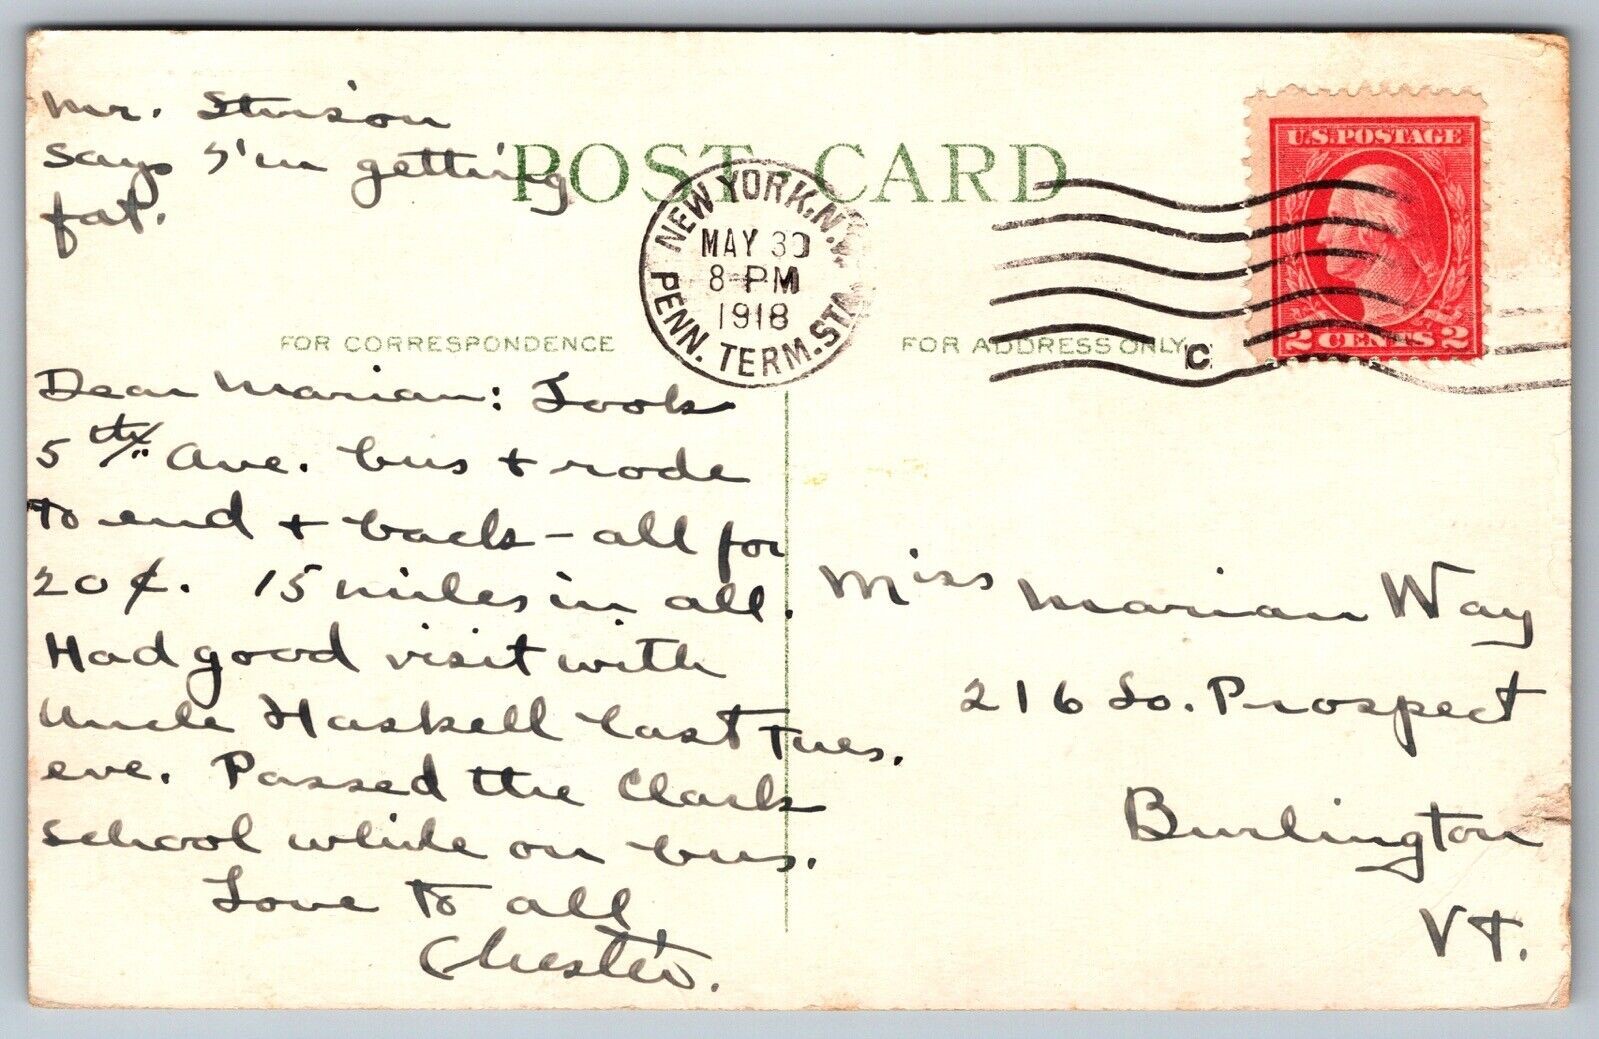 Mr. Stinson
says I'm getting
fat.
POST CARD
NEW YORK, N.Y.
MAY 30
8-PM
1918
PENN. TERM. STA.
C
U.S. POSTAGE
2 CENTS 2
FOR CORRESPONDENCE
FOR ADDRESS ONLY
Dear Marian: Took
5th Ave. bus + rode
to end + back - all for
20¢. 15 miles in all.
Had good visit with
Uncle Haskell last Tues.
eve. Passed the Clark
school while on bus.
Love to all
Chester.
Miss Marian Way
216 So. Prospect
Burlington
Vt.